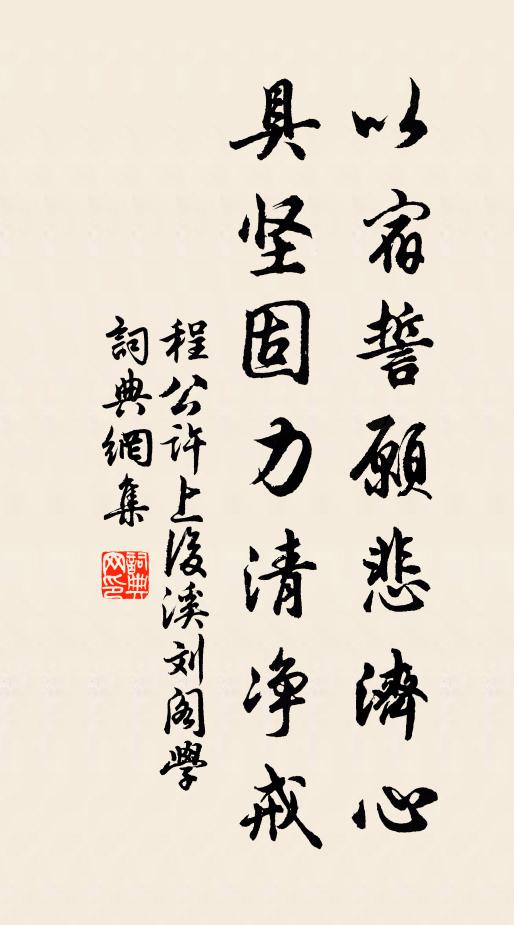 以宿誓願悲濟心
具坚固力清净戒
程公許上後溪刘阁學
詞典網集
詞典网印